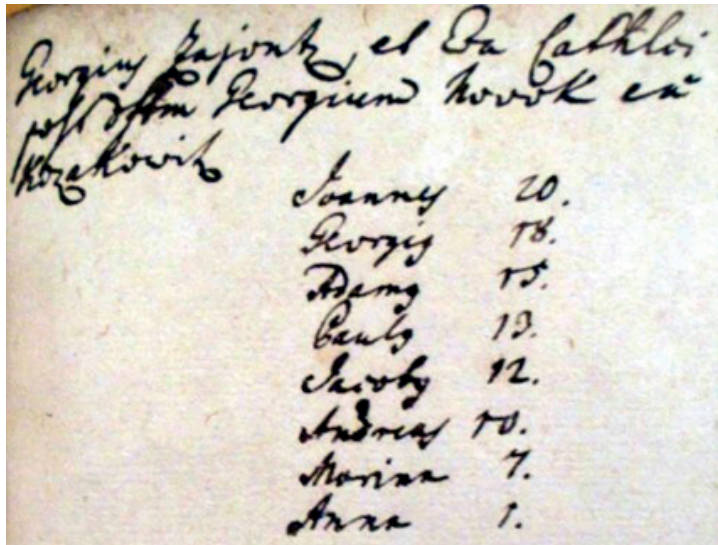 Georgius Zajontz, et Eva Cathlci
post Georgium Novok
Kozakowitz
Joannes 20.
Georgig 18.
Adamg 15.
Paulg 13.
Jacobg 12.
Andreas 10.
Marina 7.
Anna 1.